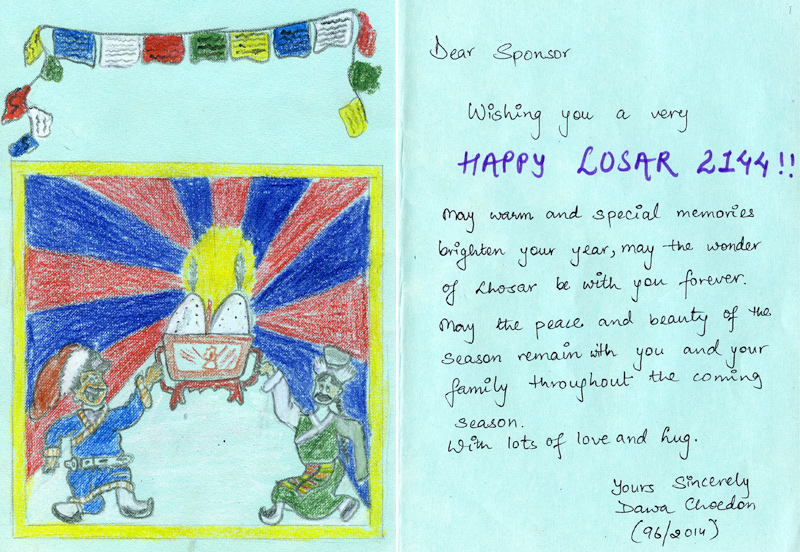 Dear Sponsor
Wishing you a very
HAPPY LOSAR 2144!!
May warm and special memories
brighten your year, may the wonder
of Lhosar be with you forever.
May the peace and beauty of the
season remain with you and your
family throughout the coming
season.
With lots of love and hug.
Yours Sincerely
Dawa Choedon
(96/2014)